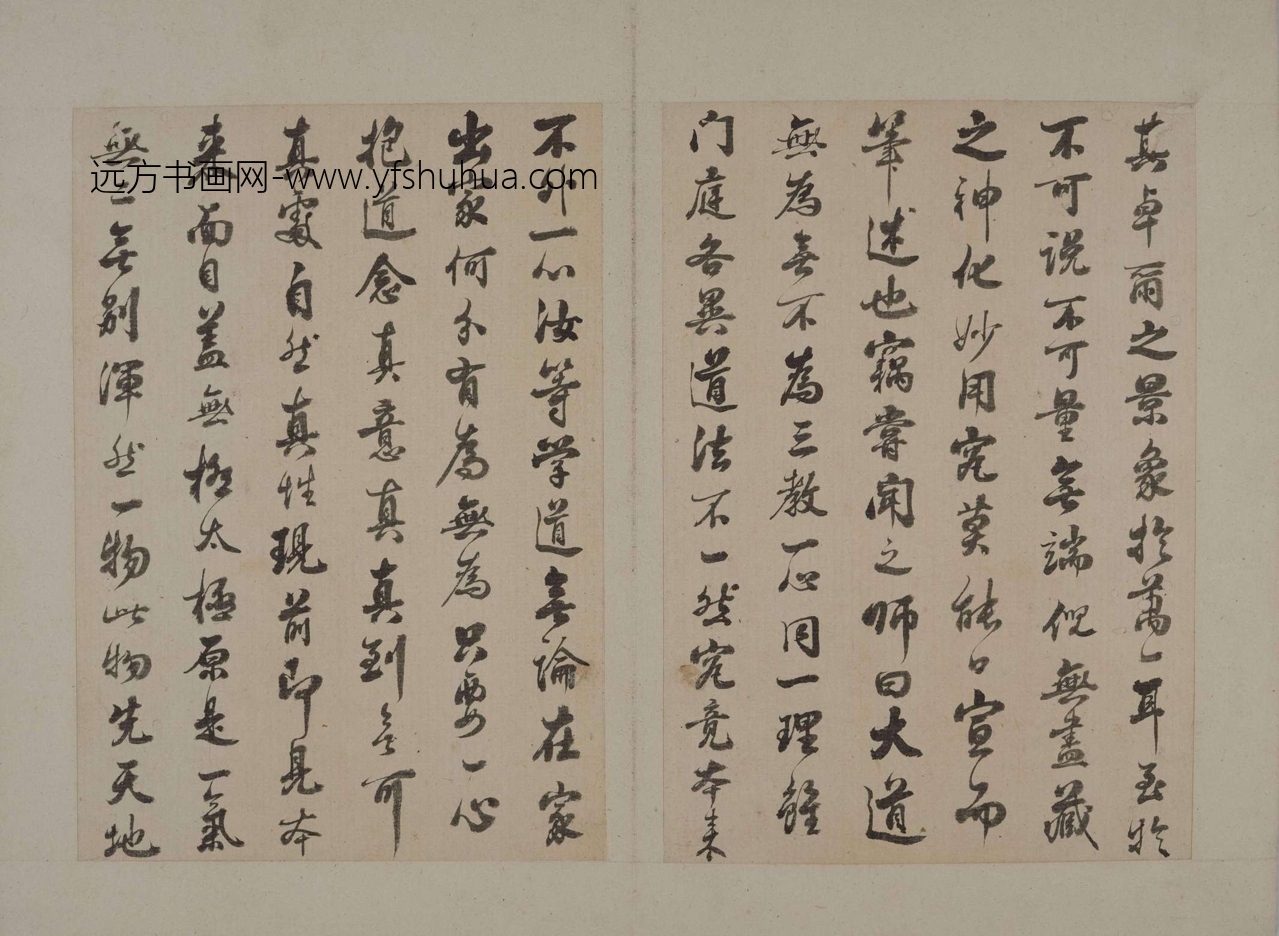 其卓爾之景象於萬一耳至於
不可说不可量無端倪無盡藏
之神化妙用究莫能口宣而
筆述也竊嘗聞之师曰大道
無為無不為三教一心同一理雖
门庭各異道法不一然究竟本来
不外一心汝等学道無論在家
出家何分有為無為只要一心
抱道念真意真真到無可
真處自然真性現前即見本
来面目蓋無極太極原是一氣
無二無别渾然一物此物先天地
远方书画网-www.yfshuhua.com